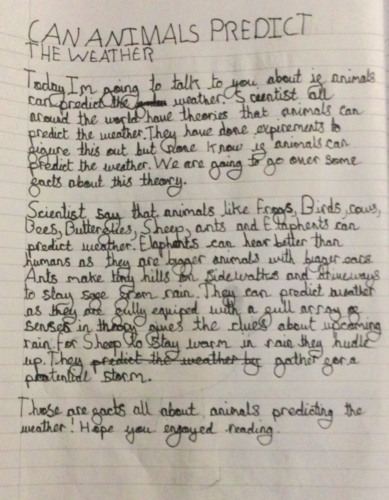 CAN ANIMALS PREDICT
THE WEATHER
Today I'm going to talk to you about if animals
can predict the weather. Scientist all
around the world have theories that animals can
predict the weather. They have done expirements to
figure this out but none know if animals can
predict the weather. We are going to go over some
facts about this theory.
Scientist say that animals like Frogs, Birds, cows,
Bees, Butterflies, Sheep, ants and Elaphants can
predict weather. Elaphants can hear better than
humans as they are bigger animals with bigger ears.
Ants make tiny hills on sidewalks and driveways
to stay safe from rain. They can predict weather
as they are fully equiped with a full array of
senses in gives the clues about upcoming
rain. for Sheep to stay warm in rain they hudle
up. They predict the weather by gather for a
potential storm.
Those are facts all about animals predicting the
weather! Hope you enjoyed reading.